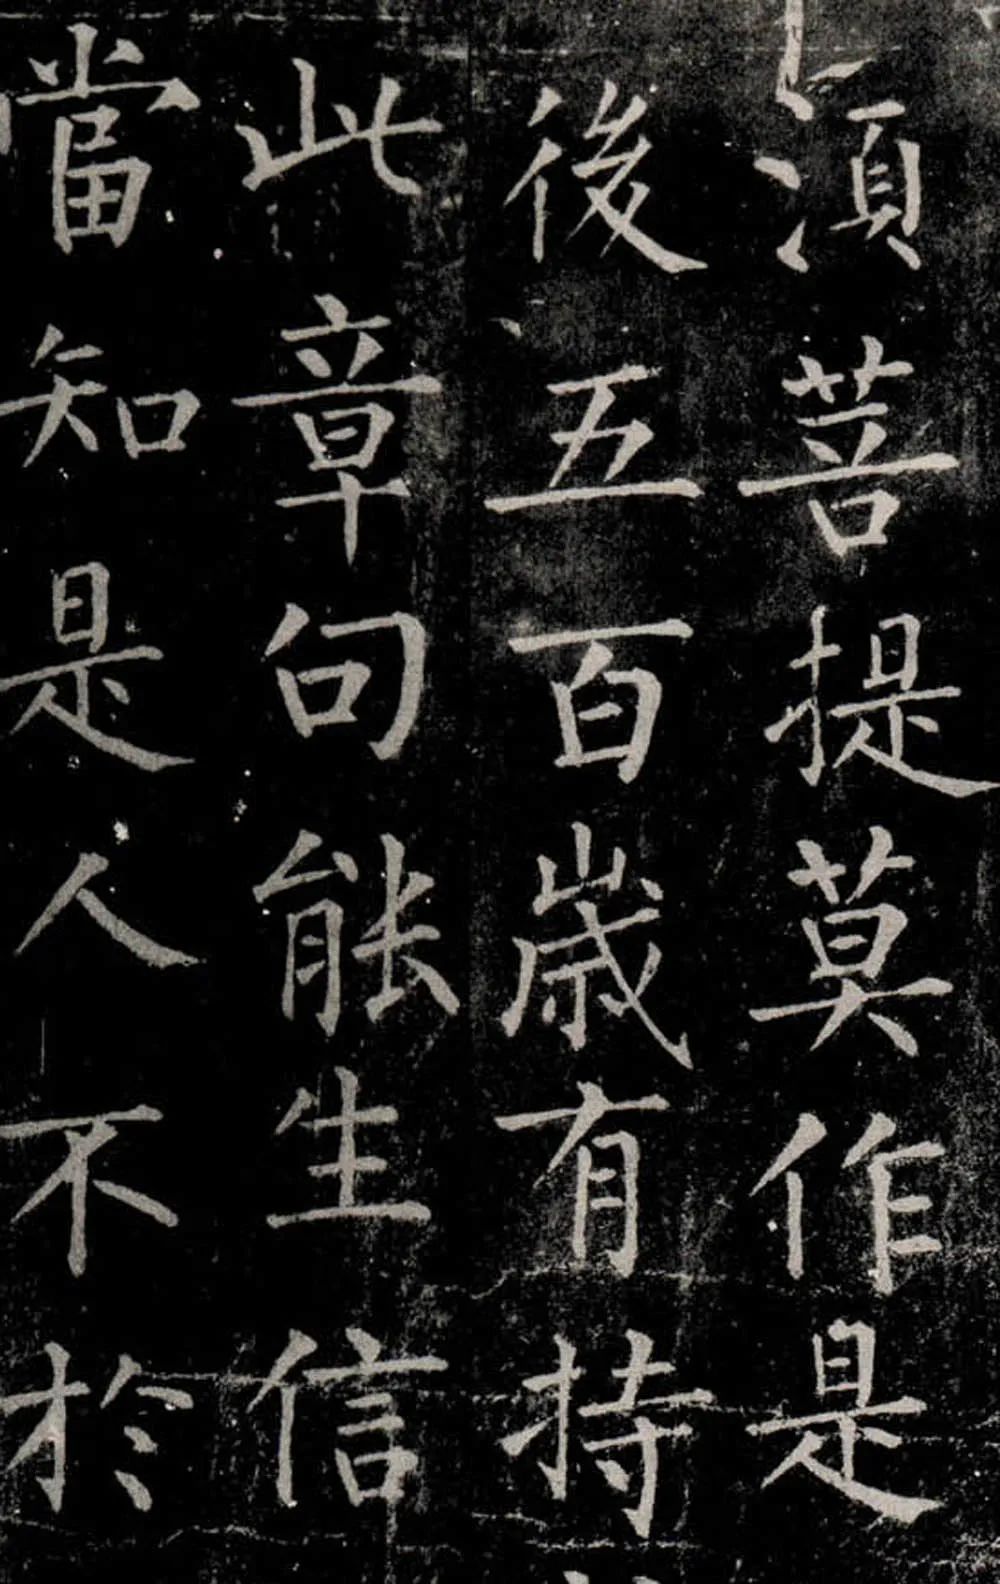 湏菩提莫作是
後五百歳有持
此章句能生信
當知是人不於